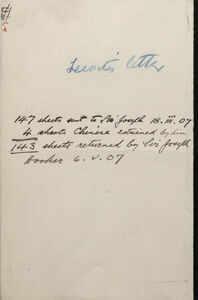 letter
147 sheets sent to Sir Joseph 18.III.07
4 sheets Chinese returned by him
143 sheets returned by Sir Joseph
Hooker 6.V.07